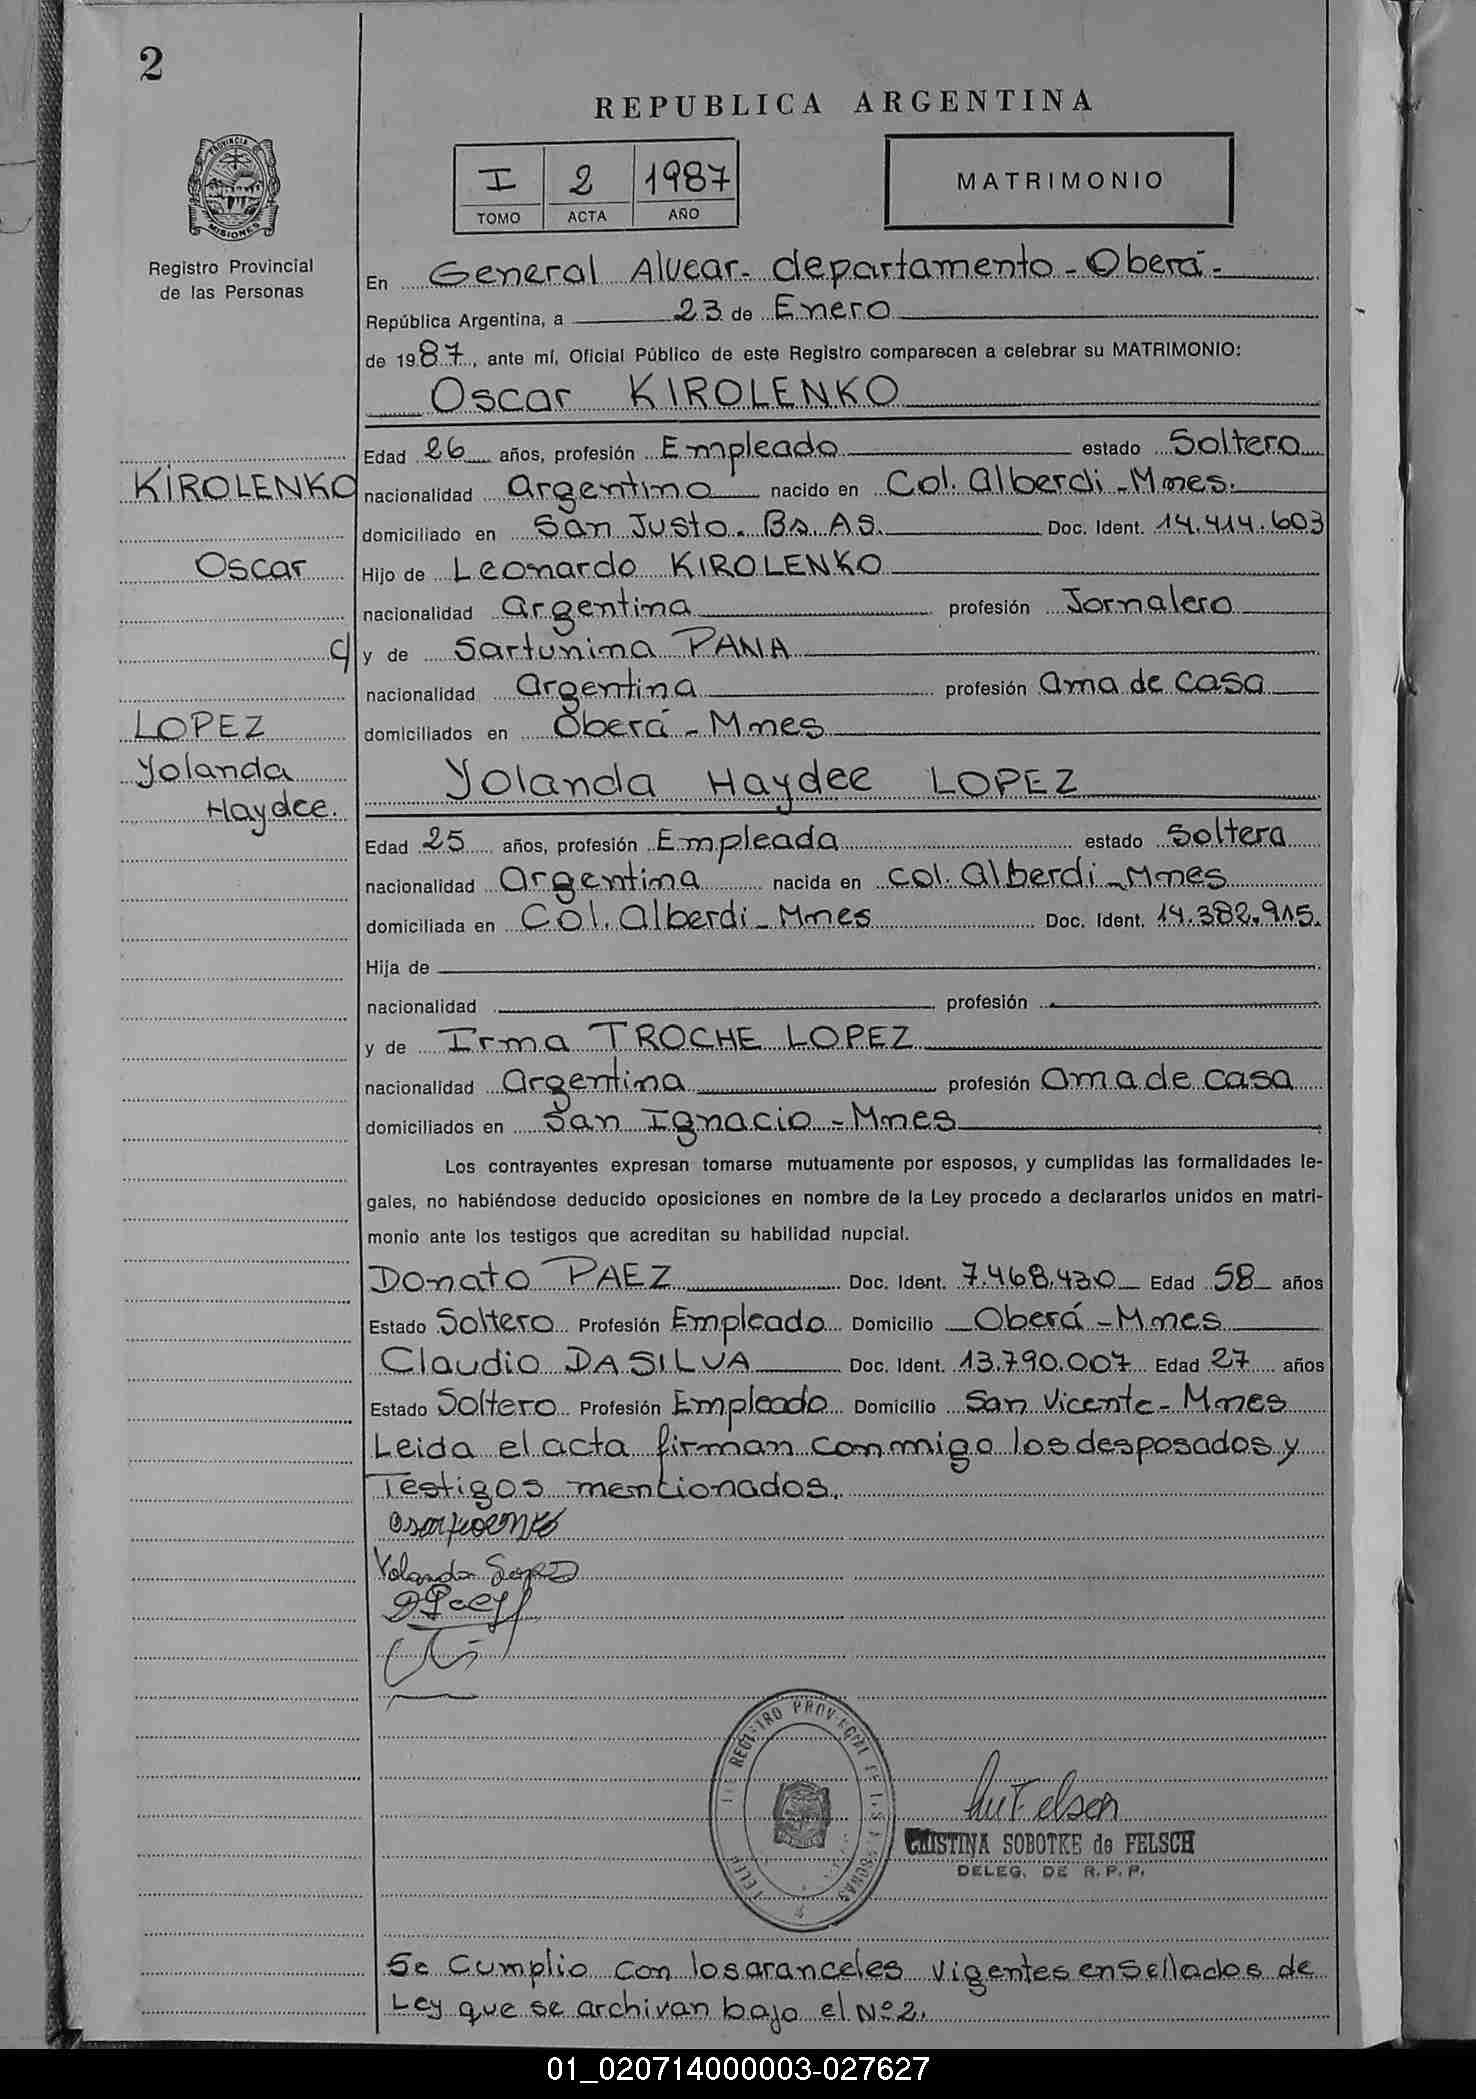 2
REPUBLICA ARGENTINA
PROVINCIA DE
MISIONES
I 2 1987
TOMO ACTA AÑO
MATRIMONIO
Registro Provincial
de las Personas
En General Alvear - departamento - Oberá -
República Argentina, a 23 de Enero
de 1987, ante mí, Oficial Público de este Registro comparecen a celebrar su MATRIMONIO:
Oscar KIROLENKO
Edad 26 años, profesión Empleado estado Soltero
KIROLENKO
nacionalidad argentino nacido en Col. Alberdi - Mnes.
domiciliado en San Justo - Bs. AS. Doc. Ident. 14.414.603
Oscar
Hijo de Leonardo KIROLENKO
nacionalidad argentina profesión Jornalero
c/
y de Sartunina PANA
nacionalidad Argentina profesión ama de casa
LOPEZ
domiciliados en Oberá - Mnes
Yolanda
Haydee.
Yolanda Haydee LOPEZ
Edad 25 años, profesión Empleada estado Soltera
nacionalidad Argentina nacida en Col. Alberdi - Mnes
domiciliada en Col. Alberdi - Mnes Doc. Ident. 14.382.915.
Hija de
nacionalidad profesión
y de Irma TROCHE LOPEZ
nacionalidad Argentina profesión ama de casa
domiciliados en San Ignacio - Mnes
Los contrayentes expresan tomarse mutuamente por esposos, y cumplidas las formalidades le-
gales, no habiéndose deducido oposiciones en nombre de la Ley procedo a declararlos unidos en matri-
monio ante los testigos que acreditan su habilidad nupcial.
Donato PAEZ Doc. Ident. 7.468.430 Edad 58 años
Estado Soltero Profesión Empleado Domicilio Oberá - Mnes
Claudio DASILVA Doc. Ident. 13.790.007 Edad 27 años
Estado Soltero Profesión Empleado Domicilio San Vicente - Mnes
Leida el acta firman conmigo los desposados y
Testigos mencionados.
Yolanda Lopez
CRISTINA SOBOTKE de FELSCH
DELEG. DE R. P. P.
Se Cumplio con los aranceles vigentes en Sellados de
Ley que se archivan bajo el Nº 2.
01_020714000003-027627